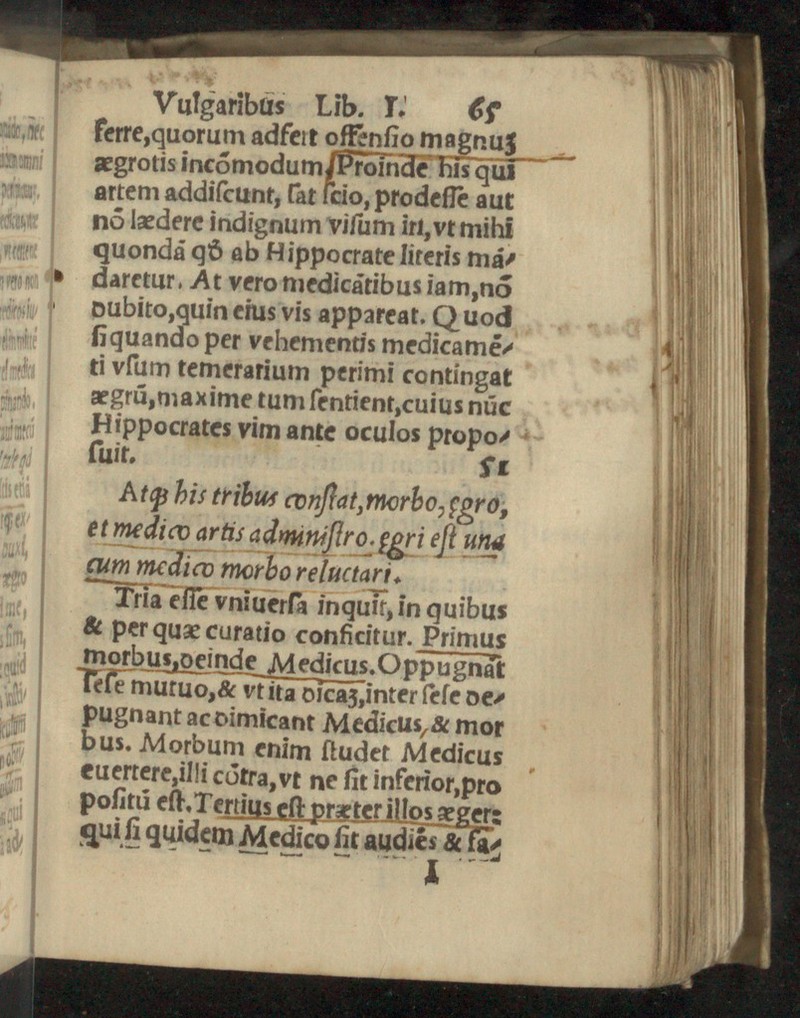 Vulgaribus Lib. I. 65
ferre,quorum adfert offenſio magnuʒ
ægrotis incōmodum.Proinde his qui
artem addiſcunt, ſat ſcio, prodeſſe aut
nō lædere indignum viſum iri,vt mihi
quondā qđ ab Hippocrate literis mā⸗
daretur. At vero medicātibus iam,nō
dubito,quin eius vis appareat. Quod
ſiquando per vehementis medicamē⸗
ti vſum temerarium perimi contingat
ægrū,maxime tum ſentient,cuius nūc
Hippocrates vim ante oculos propo⸗
ſuit. 51
Atqꝫ his tribus conſtat,morbo,ęgro,
et medico artis adminiſtro.ęgri eſt una
cum medico morbo reluctari.
Tria eſſe vniuerſa inquit, in quibus
& per quæ curatio conficitur. Primus
morbus,deinde Medicus.Oppugnāt
ſeſe mutuo,& vt ita dicaʒ,inter ſeſe de⸗
pugnant ac dimicant Medicus,& mor
bus. Morbum enim ſtudet Medicus
euertere,illi cōtra,vt ne ſit inferior,pro
poſitū eſt.Tertius eſt præter illos æger:
qui ſi quidem Medico ſit audiēs & fa⸗
I